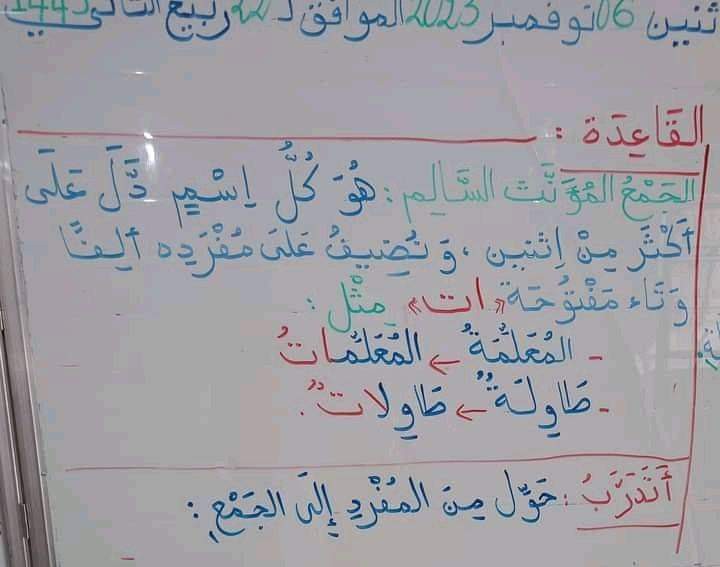 ثنين 06 نوفمبر 2023 الموافق لـ 22 ربيع الثاني 1445
القَاعِدَة :
الجَمْعُ المُؤَنَّث السَّالِم : هُوَ كُلُّ اِسْمٍ دَّلَ عَلَى
أَكْثَرَ مِنْ اِثْنين ، وَ نُضِيفُ عَلَى مُفْرَدِه أَلِفًا
وَ تَاء مَفْتُوحَة «ات» مِثْل :
- المُعَلِّمَةُ ← المُعَلِّماتُ
- طَاوِلَةٌ ← طَاوِلاتٌ .
أَتَدَرَّبُ : حَوِّل مِنَ المُفْرَدِ إِلَى الجَمْعِ :